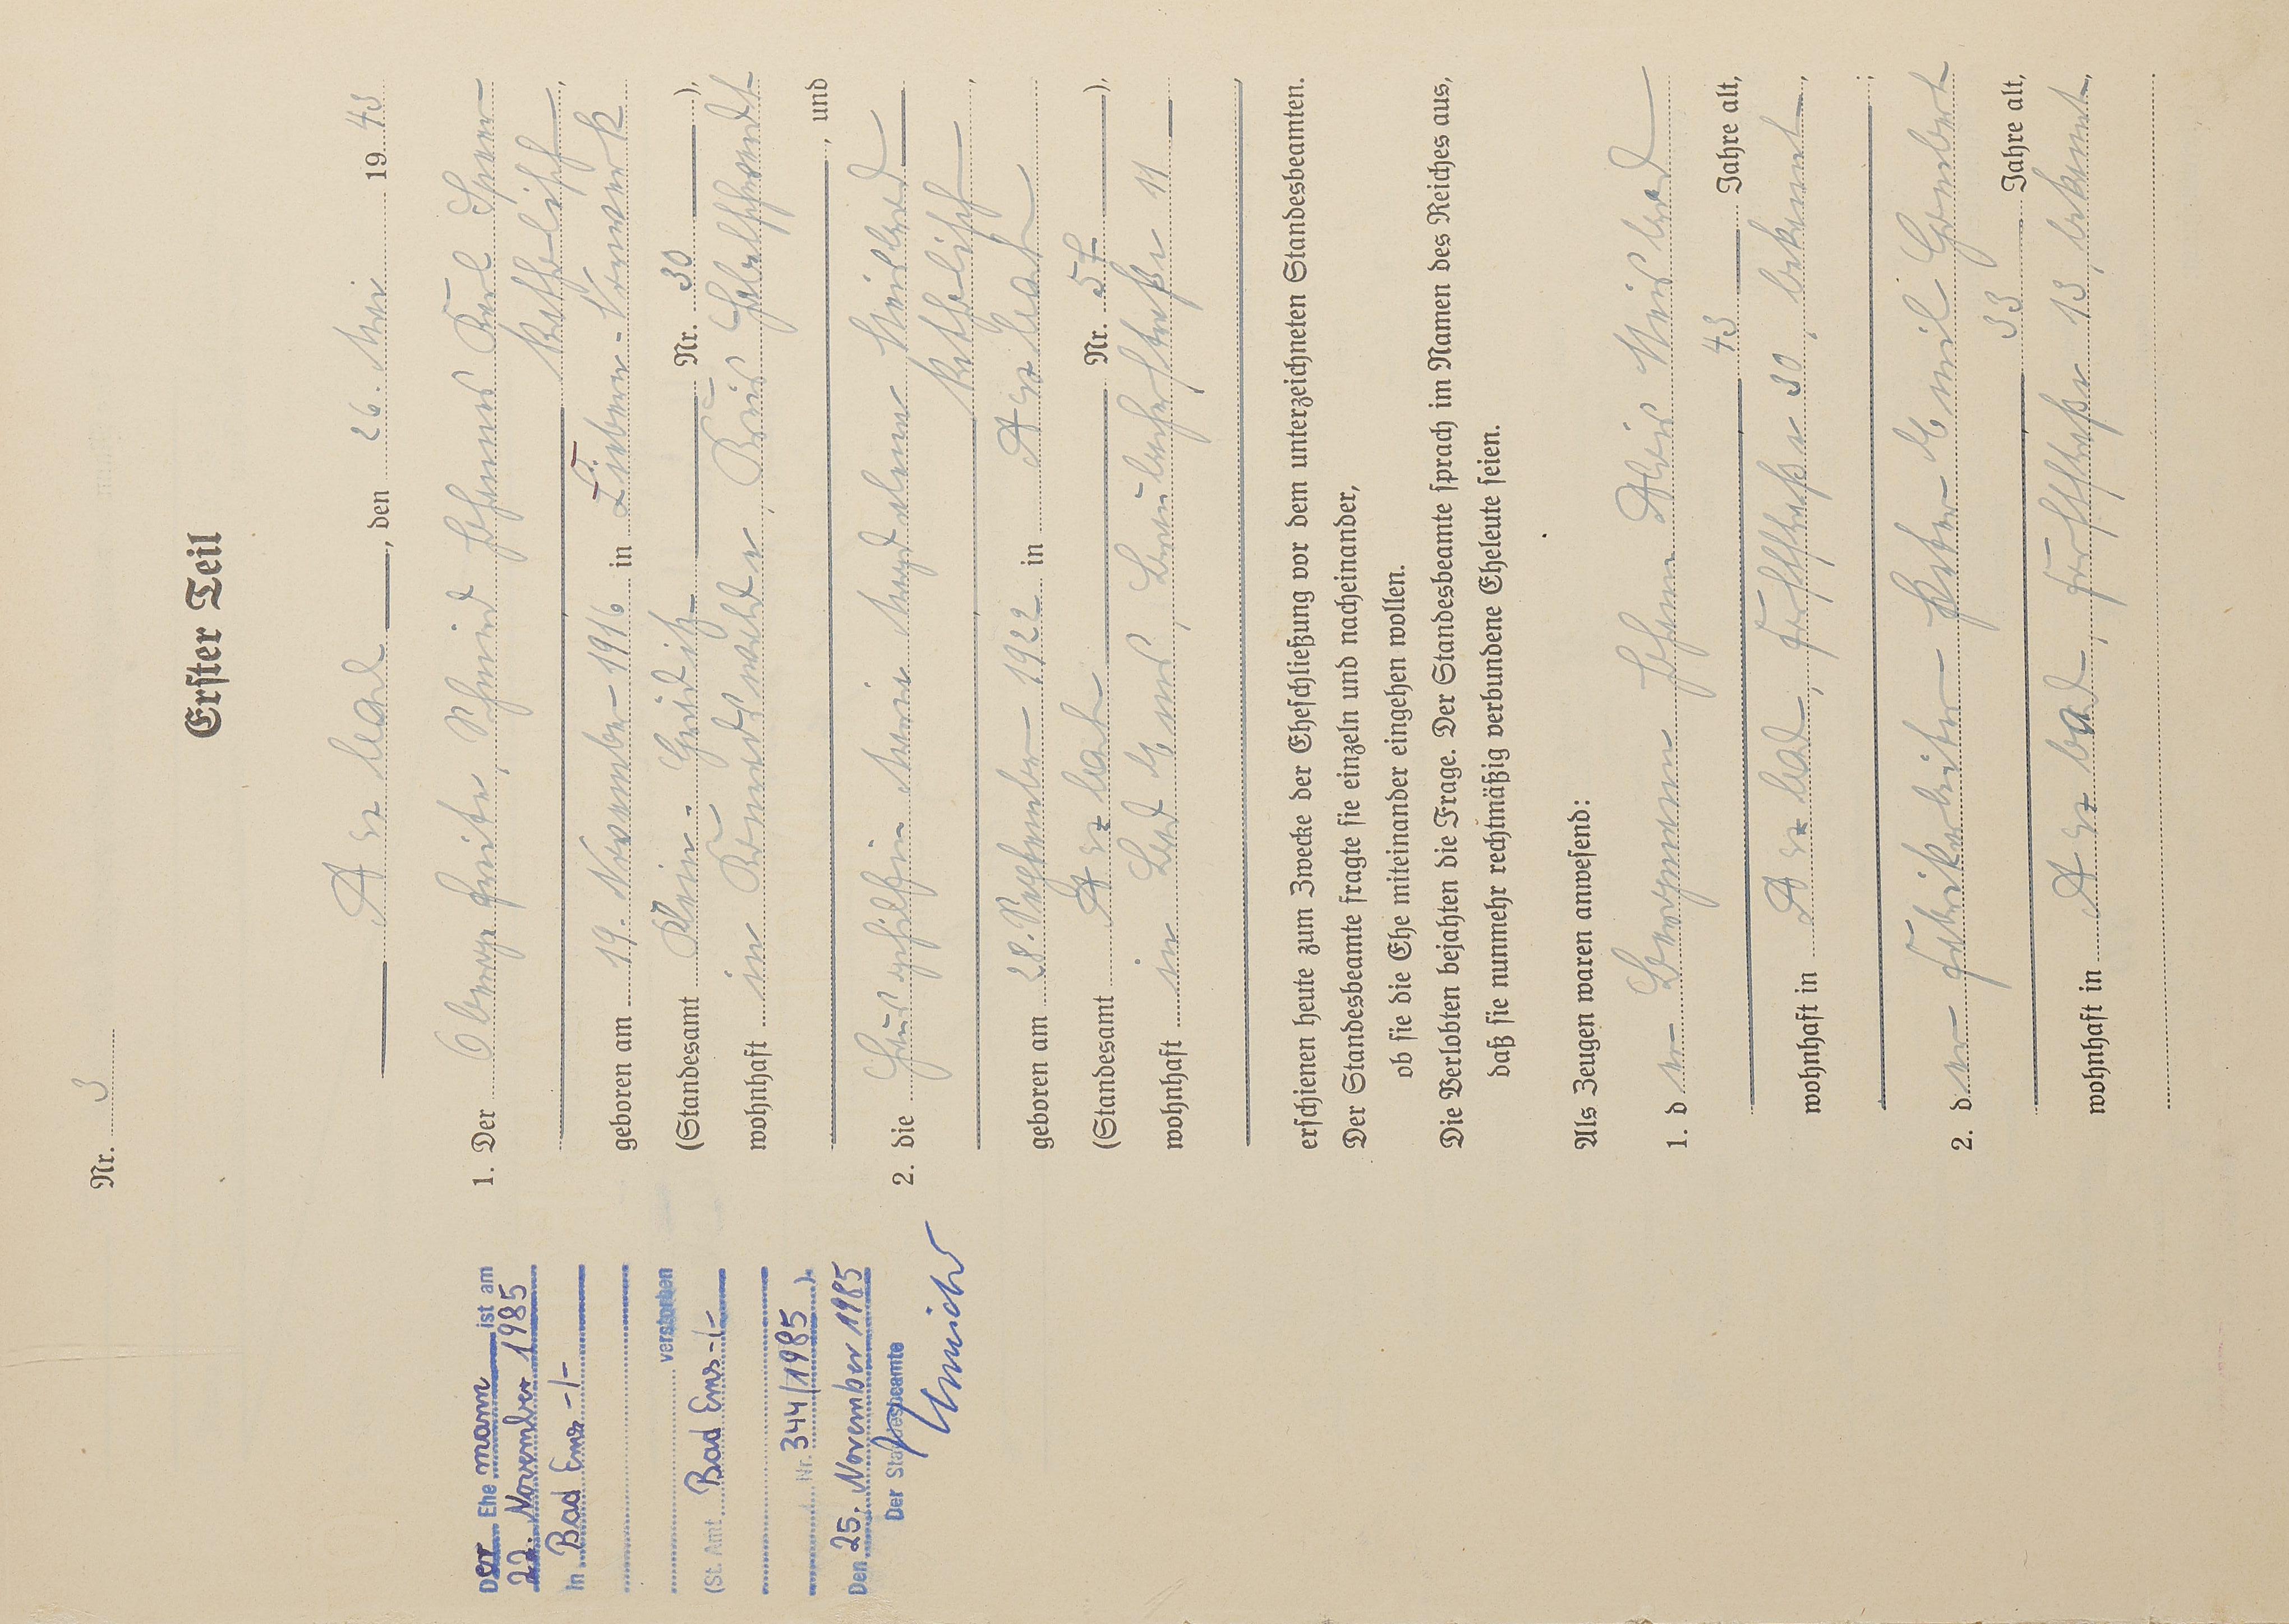 Nr. 3
Erster Teil
Arzbach, den 26. Mai 1943
1. Der Obergefreite, Schmied Johannes Karl
katholisch,
geboren am 19. November 1916 in Lieben-Vorwerk
(Standesamt Klein- Nr. 30),
wohnhaft in
, und
2. die Hausgehilfin Maria Magdalena
katholisch,
geboren am 28. September 1922 in Arzbach
(Standesamt Arzbach Nr. 57),
wohnhaft in Bad Ems, Braubacherstraße 11
erschienen heute zum Zwecke der Eheschließung vor dem unterzeichneten Standesbeamten.
Der Standesbeamte fragte sie einzeln und nacheinander,
ob sie die Ehe miteinander eingehen wollen.
Die Verlobten bejahten die Frage. Der Standesbeamte sprach im Namen des Reiches aus,
daß sie nunmehr rechtmäßig verbundene Eheleute seien.
Als Zeugen waren anwesend:
1. der Bergmann Johann Alois
43 Jahre alt,
wohnhaft in Arzbach, 30, bekannt,
;
2. der Fabrikarbeiter Peter Emil
33 Jahre alt,
wohnhaft in Arzbach, 13, bekannt,
Der Ehemann ist am
22. November 1985
in Bad Ems -/-
verstorben
(St. Amt Bad Ems -/-
Nr. 344/1985).
Den 25. November 1985
Der Standesbeamte